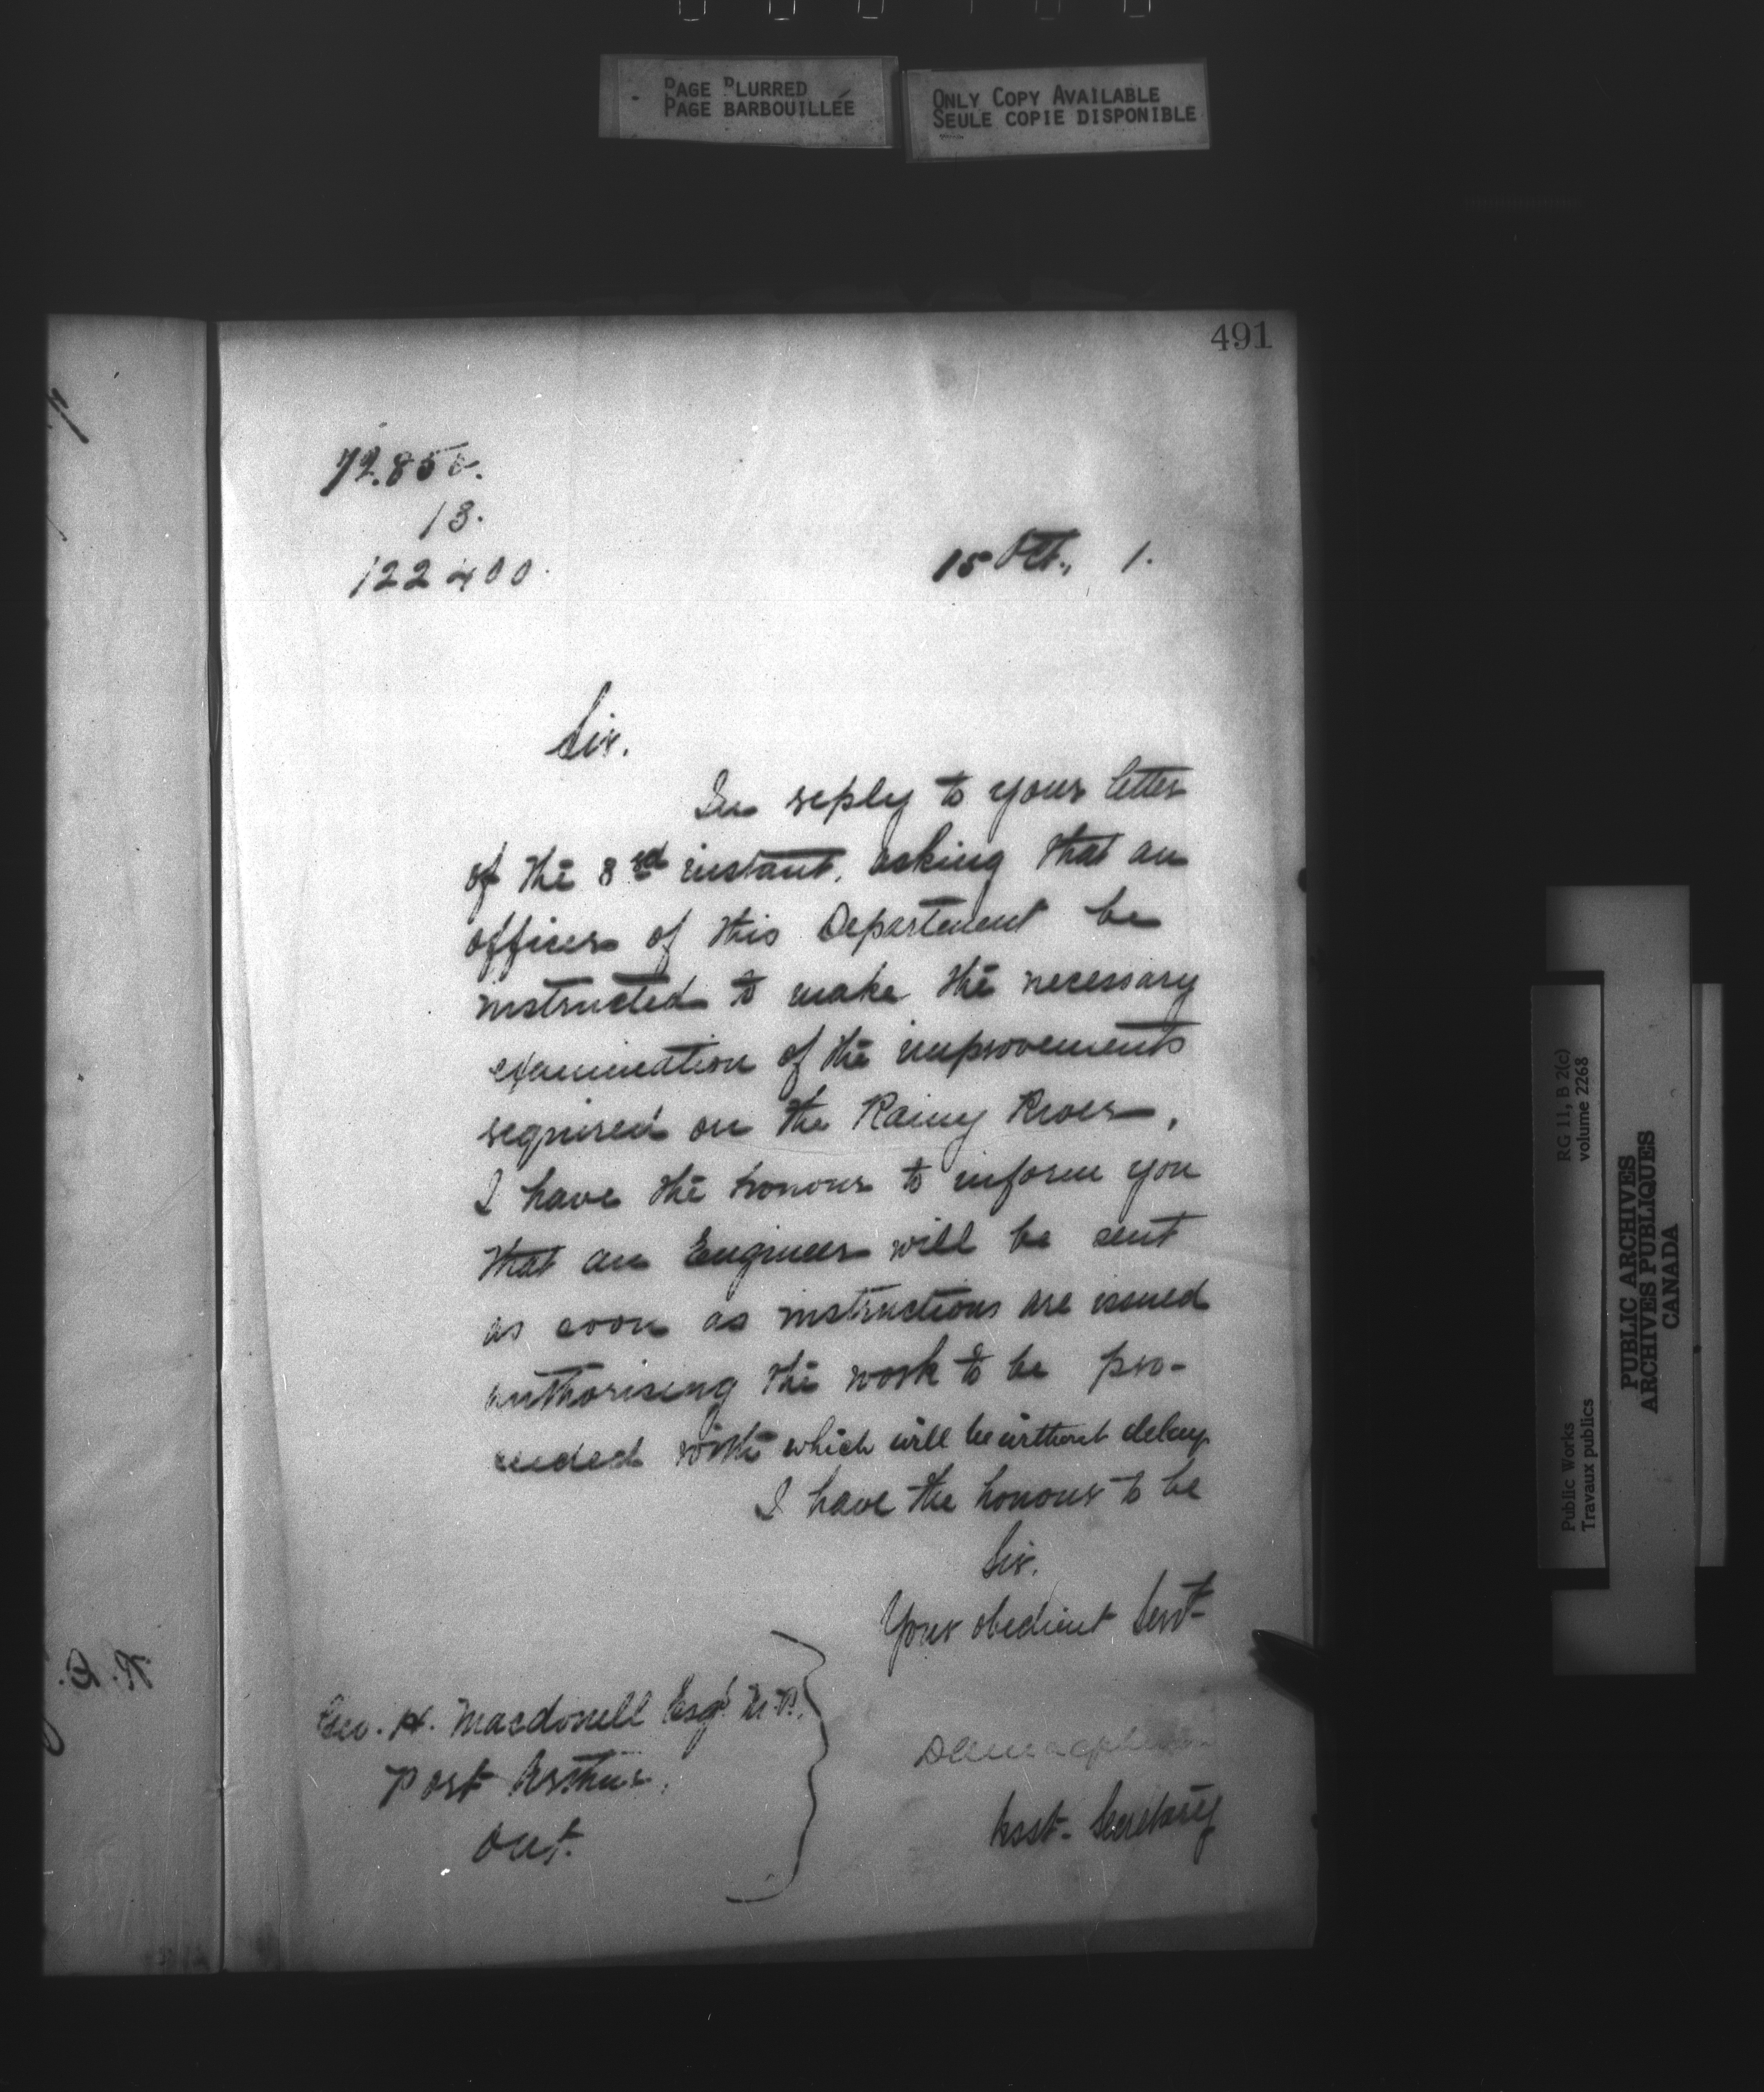 PAGE BLURRED
PAGE BARBOUILLÉE
ONLY COPY AVAILABLE
SEULE COPIE DISPONIBLE
491
72.850.
13.
122400.
15 Oct., 1.
Sir.
In reply to your letter
of the 8rd instant, asking that an
officer of this Department be
instructed to make the necessary
examination of the improvements
required on the Rainy River,
I have the honour to inform you
that an Engineer will be sent
as soon as instructions are issued
authorising the work to be pro-
ceeded with which will be without delay
I have the honour to be
Sir.
Your obedient Servt
Geo. H. Macdonell Esqr. M.P.
Port Arthur.
Ont.
Asst. Secretary
RG 11, B 2(c)
volume 2268
Public Works
Travaux publics
PUBLIC ARCHIVES
ARCHIVES PUBLIQUES
CANADA